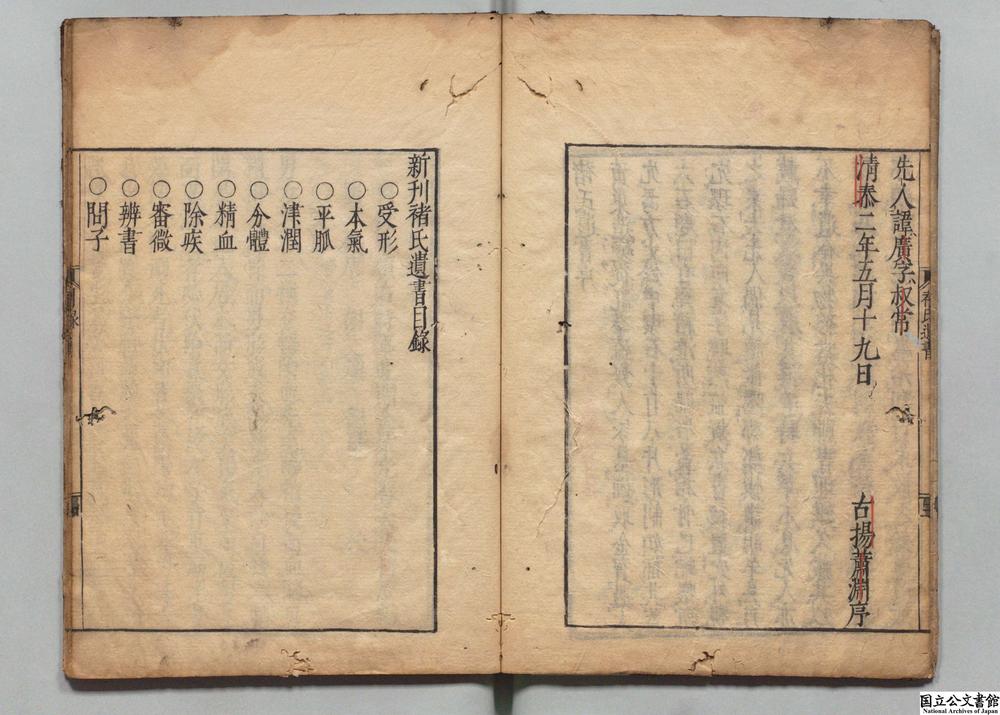 先人諱廣字叔常
清泰二年五月十九日 古揚蕭淵序
新刊褚氏遺書目錄
○受形
○本氣
○平脈
○津潤
○分體
○精血
○除疾
○審微
○辨書
○問子
国立公文書館
National Archives of Japan